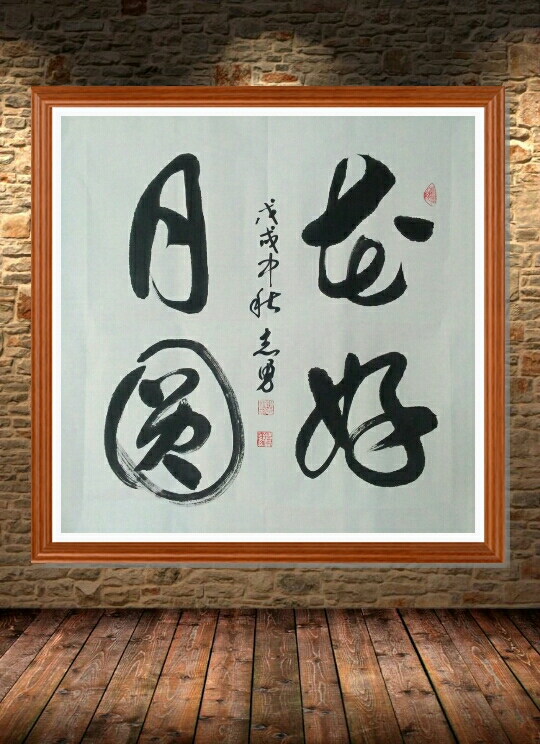 花好
月圆
戊戌中秋志勇